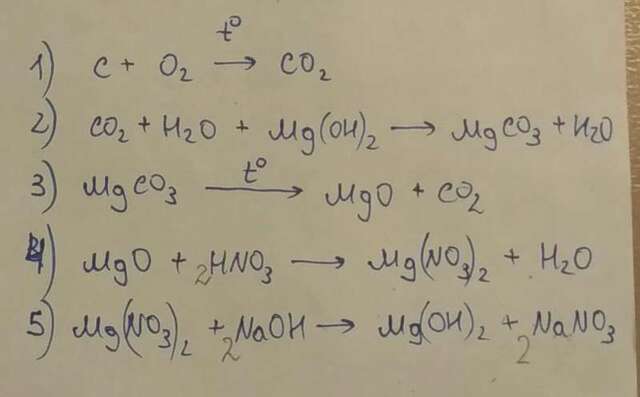 1) C + O₂ →(t°) CO₂
2) CO₂ + H₂O + Mg(OH)₂ → MgCO₃ + H₂O
3) MgCO₃ →(t°) MgO + CO₂
4) MgO + 2HNO₃ → Mg(NO₃)₂ + H₂O
5) Mg(NO₃)₂ + 2NaOH → Mg(OH)₂ + 2NaNO₃